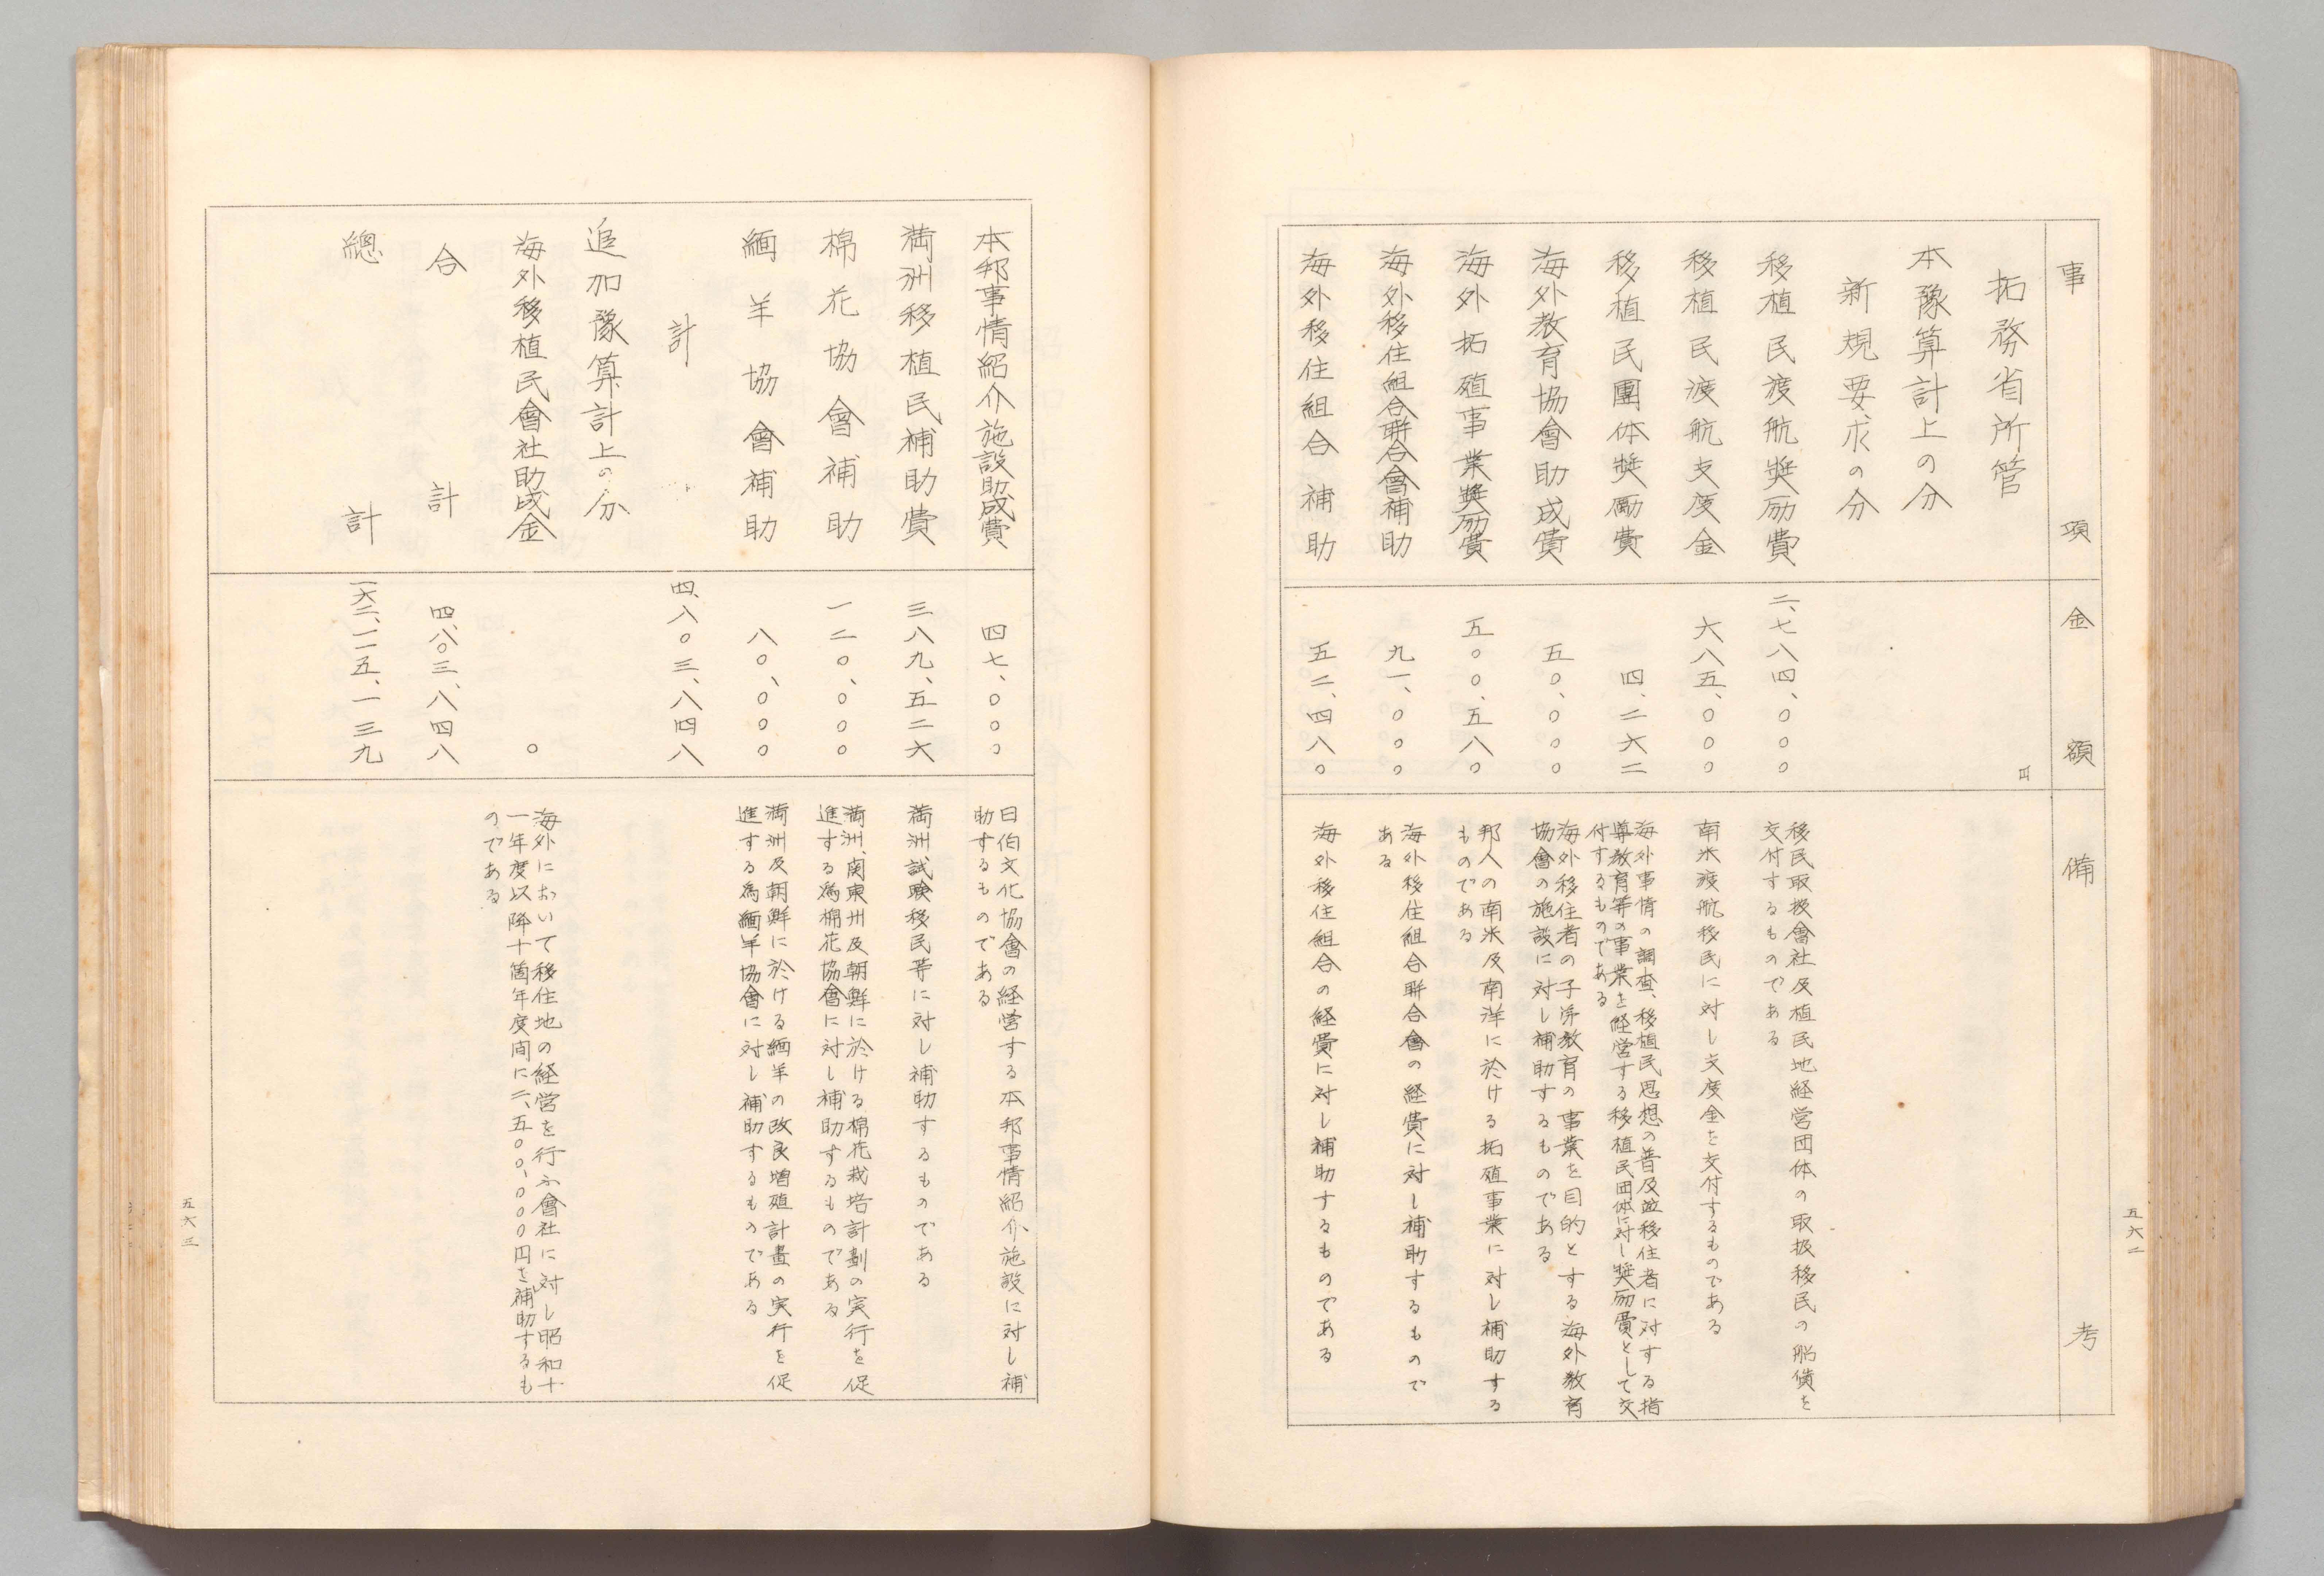 事項
金額
備考
拓務省所管
円
本豫算計上の分
新規要求の分
移植民渡航奬励費
二、七八四、〇〇〇
移民取扱會社及植民地経営団体の取扱移民の船債を
交付するものである
移植民渡航支度金
六八五、〇〇〇
南米渡航移民に対し支度金を交付するものである
移植民團体奬励費
四、二六二
海外事情の調査、移植民思想の普及並移住者に対する指
導教育等の事業を経営する移植民団体に対し奬励費として交
付するものである
海外教育協會助成費
五〇、〇〇〇
海外移住者の子弟教育の事業を目的とする海外教育
協會の施設に対し補助するものである
海外拓殖事業奬励費
五〇〇、五八〇
邦人の南米及南洋に於ける拓殖事業に対し補助する
ものである
海外移住組合聯合會補助
九一、〇〇〇
海外移住組合聯合會の経費に対し補助するもので
ある
海外移住組合補助
五二、四八〇
海外移住組合の経費に対し補助するものである
五六二
本邦事情紹介施設助成費
四七、〇〇〇
日伯文化協會の経営する本邦事情紹介施設に対し補
助するものである
満洲移植民補助費
三八九、五二六
満洲試験移民等に対し補助するものである
棉花協會補助
一二〇、〇〇〇
満洲、関東州及朝鮮に於ける棉花栽培計劃の実行を促
進する為棉花協會に対し補助するものである
緬羊協會補助
八〇、〇〇〇
満洲及朝鮮に於ける緬羊の改良増殖計畫の実行を促
進する為緬羊協會に対し補助するものである
計
四、八〇三、八四八
追加豫算計上の分
海外移植民會社助成金
〇
海外において移住地の経営を行ふ會社に対し昭和十
一年度以降十箇年度间に二、五〇〇、〇〇〇円を補助するも
のである
合計
四、八〇三、八四八
總計
一六二、一一五、一三九
五六三